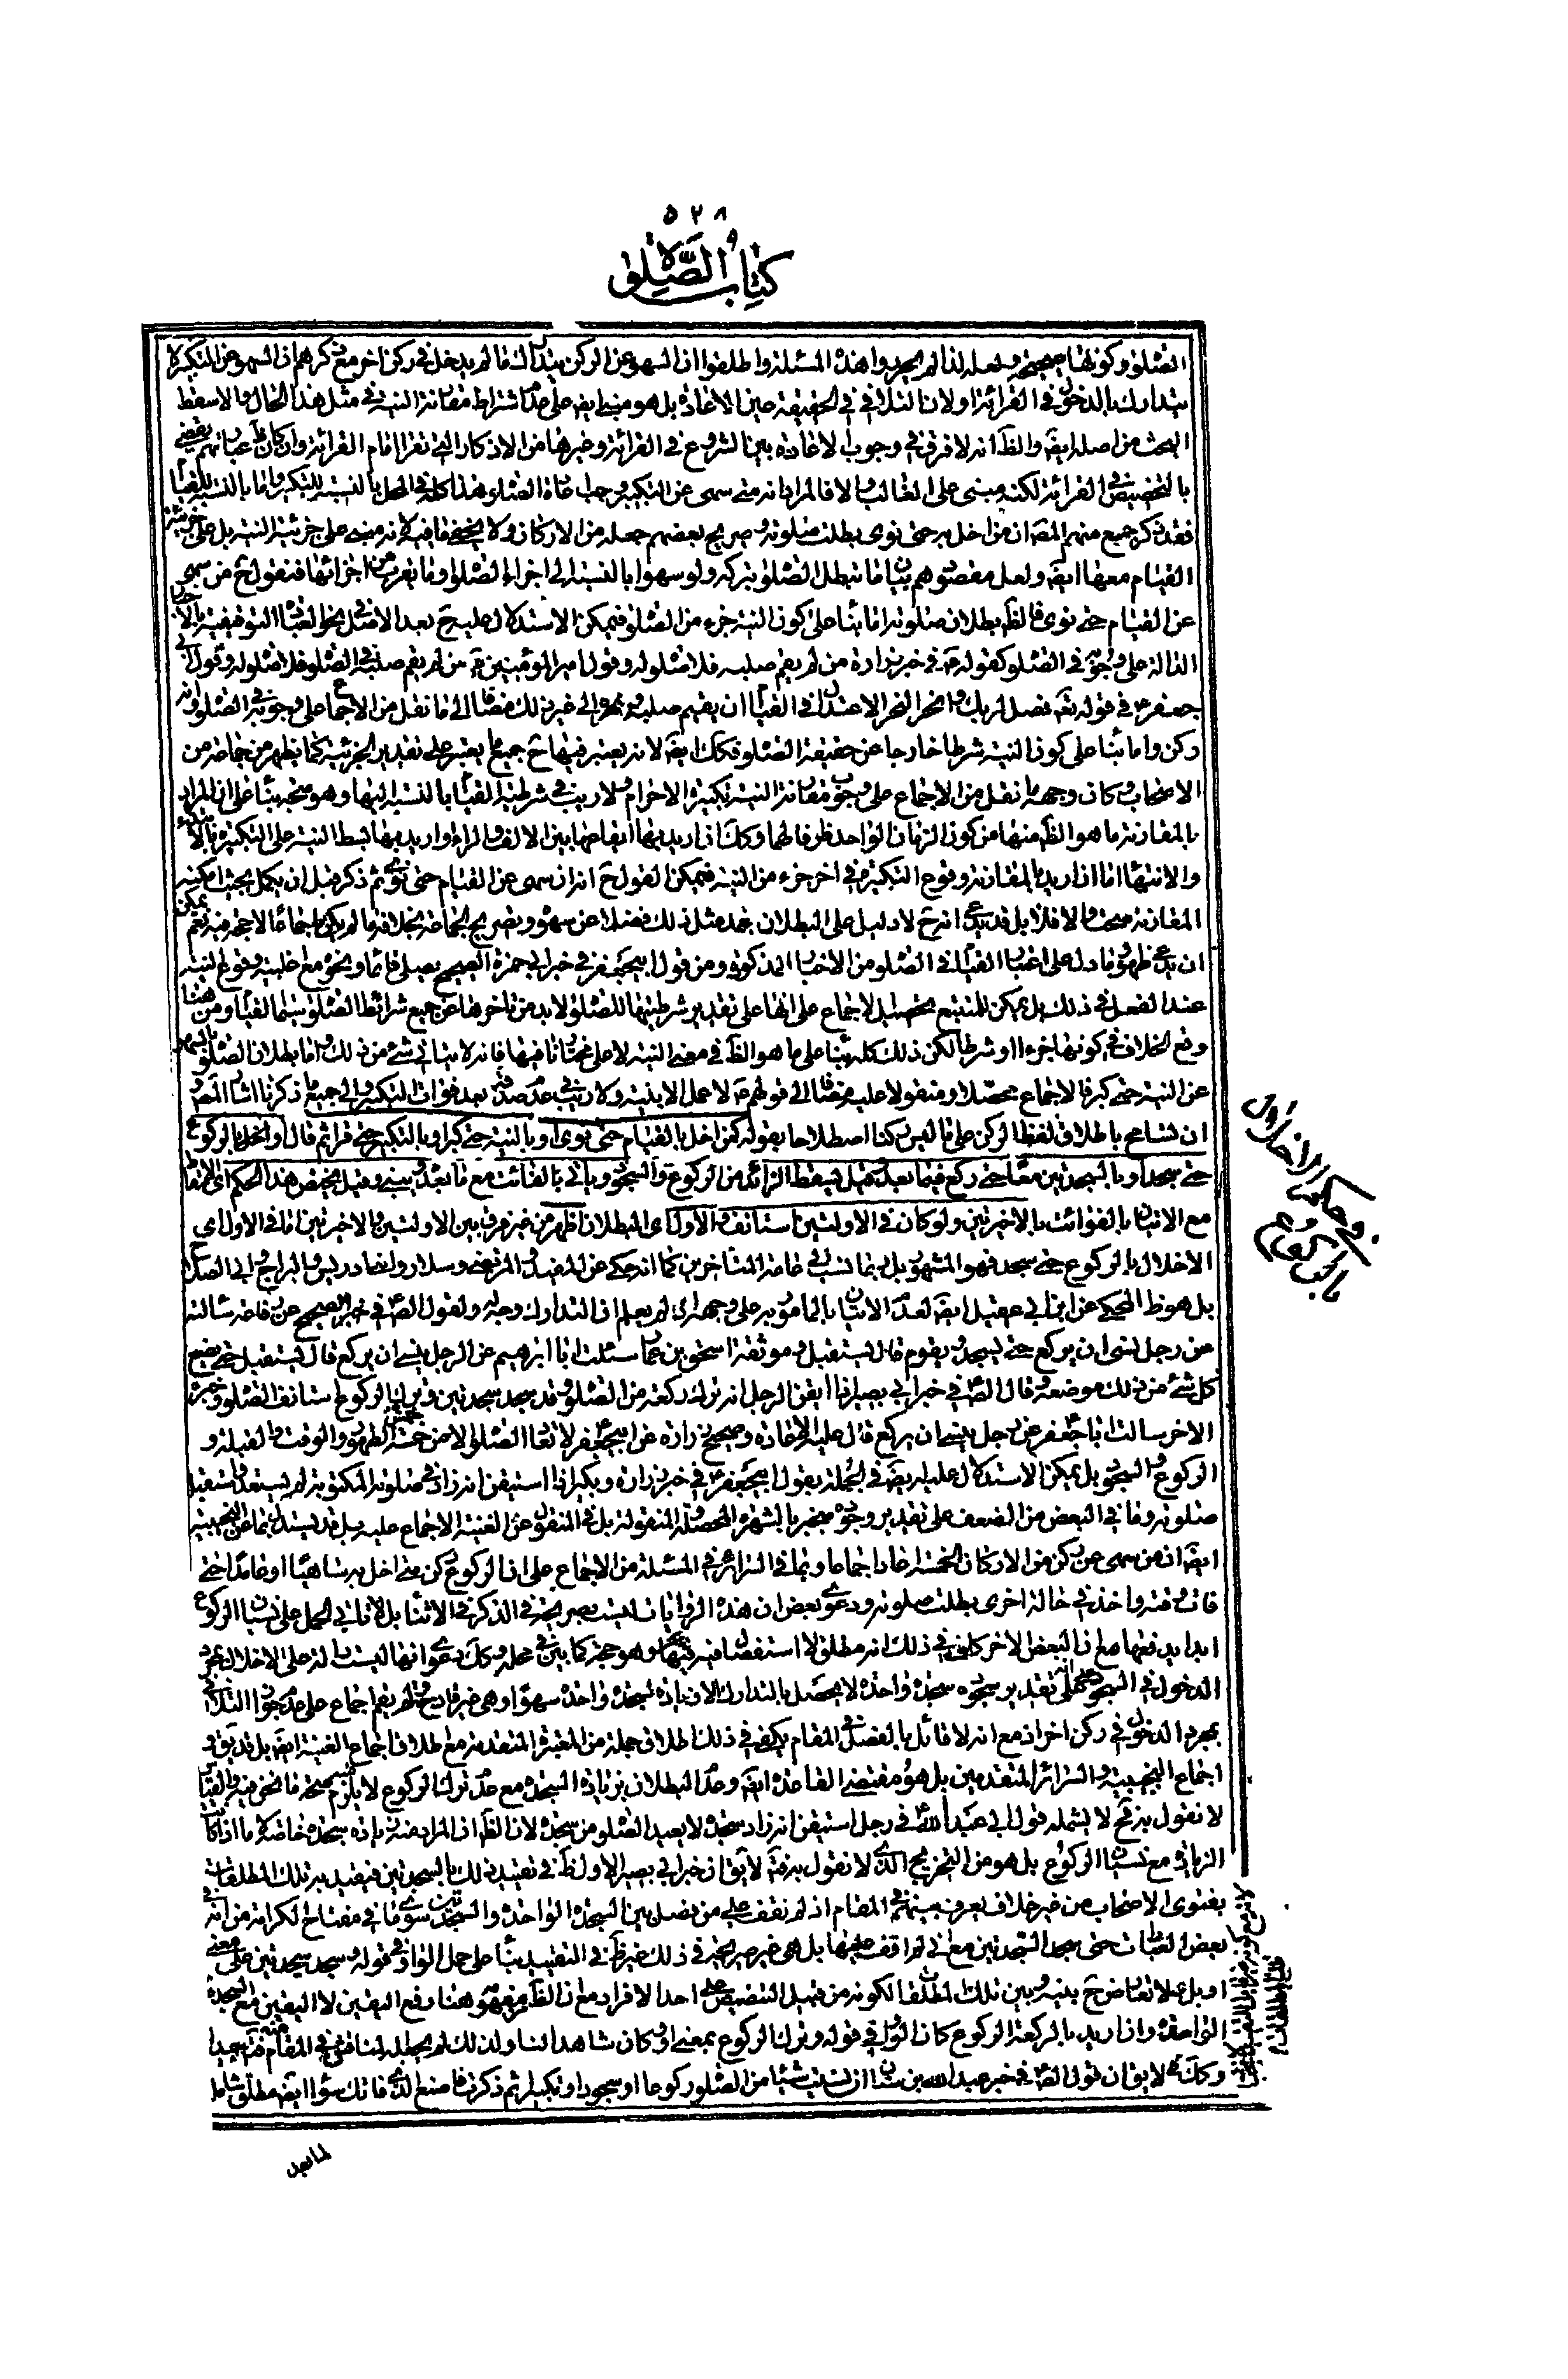 ٥٢٨
كتاب الصّلوة
الصلوة وكونها صحيحة ولعله لذا لم يجروا هذه المسئلة واطلقوا ان السهو عن الركن يتدارك ما لم يدخل في ركن اخر مع ذكرهم ان السهو عن التكبيرة لا
يتدارك بالدخول في القرائة اولان التلافي في الحقيقة عين الاعادة بل هو مبني ايضا على عدم اشتراط مقارنة النية في مثل هذا الحال والا سقط
البحث من اصله ايضا والظ انه لا فرق في وجوب الاعادة بين الشروع في القرائة وغيرها من الاذكار التي تقرا امام القرائة وان كان عباراتهم يقضي
بالتخصيص في القرائة لكنه مبنى على الغالب والا فالمراد انه متى سهى عن التكبير وجب اعادة الصلوة هذا كله في المحل بالنسبة للتكبير واما بالنسبة للقيام
فقد ذكر جميع منهم المص ان من اخل به حتى نوى بطلت صلوته وصريح بعضهم جعله من الاركان ولا يخفى ما فيه لانه مبني على جزئية النية بل على
القيام معها ايضا ولعل مقصودهم بيان ما تبطل الصلوة بتركه ولو سهوا بالنسبة الى اجزاء الصلوة وما يقرب من اجزائها فنقول ح من سهى
عن القيام حتى نوى فالظ بطلان صلوته اما بناء على كون النية جزء من الصلوة فيمكن الاستدلال عليه ح بعد الاصل في نحو العبادة التوقيفية بالاخبار
الدالة على وجوبه في الصلوة كقوله ع في خبر زرارة من لم يقم صلبه فلا صلوة له وقول امير المؤمنين ع من لم يقم صلبه في الصلوة فلا صلوة له وقول ابي
جعفر ع في قوله تعه فصل لربك وانحر النحر الاعتدال في القيام ان يقيم صلبه ونحره الى غير ذلك مضافا الى ما نقل من الاجماع على وجوبه في الصلوة وانه
ركن واما بناء على كون النية شرطا خارجا عن حقيقة الصلوة فكك ايضا لانه يعتبر فيها ح جميع ما يعتبر على تقدير الجزئية كما يظهر من جماعة من
الاصحاب وكان وجهه ما نقل من الاجماع على وجوب مقارنة النية تكبيرة الاحرام ولا ريب في شرطية القيام بالنسبة اليها وهو متجه بناء على ان المراد
بالمقارنة ما هو الظ منها من كون الزمان الواحد ظرفا لهما وكك ان اريد بها ايقاعها بين الالف والراء او اريد بها بسط النية على التكبيرة بالابتداء
والانتهاء اما اذا اريد بالمقارنة وقوع التكبيرة في اخر جزء من النية فيمكن القول ح انه ان سهى عن القيام حتى نوى ثم ذكر قبل ان يكمل بحيث امكنه
المقارنة صحت والا فلا بل قد يدعى انه ح لا دليل على البطلان بعمد مثل ذلك فضلا عن سهوه وتصريح الجماعة بخلافه ما لم يكن اجماعا لا حجة فيه نعم يمكن
ان يدعى ظهور ما دل على اعتبار القيام في الصلوة من الاخبار المذكورة ومن قول ابي جعفر في خبر ابي حمزة الصحيح يصلي قائما ونحوه مع غلبة وقوع النية
عند الفعل في ذلك بل يمكن للمتتبع تحصيل الاجماع على انها على تقدير شرطيتها للصلوة لا بد من تاخرها عن جميع شرائط الصلوة سيما القيام ومن هنا
وقع الخلاف في كونها جزء او شرطا لكن ذلك كله بناء على ما هو الظ في معنى النية لا على مختارنا فيها فانه لا يتاتى شئ من ذلك واما بطلان الصلوة بالسهو
عن النية حتى كبر فالاجماع محصلا ومنقولا عليه مضافا الى قولهم ع لا عمل الا بنية ولا ريب في عدم صدقه بعد فوات التكبير والى جميع ما ذكرنا اشار المص و
ان تسامح باطلاق لفظ الركن على ما ليس ركنا اصطلاحا بقوله كمن اخل بالقيام حتى نوى او بالنية حتى كبر او بالتكبير حتى قرا ثم قال او اخل بالركوع
حتى سجد او بالسجدتين معا حتى ركع فيما بعد وقيل يسقط الزائد من الركوع والسجود وياتي بالفائت مع ما بعده ويبني وقيل يختص هذا الحكم اي الاسقاط
مع الاتيان بالفوائت بالاخيرتين ولو كان في الاولتين استانف والاول اي البطلان اظهر من غير فرق بين الاولتين والاخيرتين اما في الاول اي
الاخلال بالركوع حتى سجد فهو المشهور بل ربما نسب الى عامة المتاخرين كما انه حكى عن المفيد والمرتضى وسلار وابناء ادريس والبراج وابي الصلاح
بل هو ظ المحكى عن ابن ابي عقيل ايضا لعدم الاتيان بالمامور به على وجهه اذ لم يعلم ان التدارك وجه له ولقول الص ع في خبر الصحيح عن رفاعة سالته
عن رجل نسى ان يركع حتى يسجد ويقوم قال يستقبل وموثقة اسحق بن عمار سئلت ابا ابراهيم عن الرجل ينسى ان يركع قال يستقبل حتى يضع
كل شئ من ذلك موضعه وقال الص ع في خبر ابي بصير اذا ايقن الرجل انه ترك ركعة من الصلوة وقد سجد سجدتين وترك الركوع استانف الصلوة وخبره
الاخر سالت ابا جعفر عن رجل نسى ان يركع قال عليه الاعادة وصحيح زرارة عن ابي جعفر لا تعاد الصلوة الا من خمسة الطهور والوقت والقبلة و
الركوع والسجود بل يمكن الاستدلال عليه ايضا في الجملة بقول ابي جعفر ع في خبر زرارة وبكير اذا استيقن انه زاد في صلوته المكتوبة لم يعتد بها واستقبل
صلوته وما في البعض من الضعف على تقدير وجوده منجبر بالشهرة المحصلة المنقولة بل في المنقول عن الغنية الاجماع عليه بل قد يستدل بما عن النجيبية
ايضا ان من سهى عن ركن من الاركان الخمسة اعاد اجماعا وبما في السرائر في المسئلة من الاجماع على ان الركوع ركن متى اخل به ساهيا او عامدا حتى
فات وقته واخذ في حالة اخرى بطلت صلوته ودعوى بعض ان هذه الروايات ليست بصريحة في الذكر في الاثناء بل لا تابى الحمل على نسيان الركوع
الدخول في السجود على تقدير سجوده سجدة واحدة لا يحصل بالتدارك الا زيادة سجدة واحدة سهوا وهي غير قادحة ولم يقم اجماع على عدم جواز التدارك
بمجرد الدخول في ركن اخر اذ مع انه لا قائل بالفصل في المقام يكفي في ذلك اطلاق جملة من المعتبرة المتقدمة مع اطلاق اجماع الغنية ايضا بل قد يق و
اجماع النجيبية والسرائر المتقدمين بل هو مقتضى القاعدة ايضا وعدم البطلان بزيادة السجدة مع عدم ترك الركوع لا يلزم صحة ما نحن فيه والقياس
لا نقول به نعم لا يشمله قول ابي عبد الله ع في رجل استيقن انه زاد سجدة لا يعيد الصلوة من سجدة لان الظ ان المراد منه زيادة سجدة خاصة لا ما اذا كان
الزيادة مع نسيان الركوع بل هو من التخريج الذي لا نقول به فيه لا يق ان خبر ابي بصير الاول ظ في تقييد ذلك بالسجدتين فيقيد به تلك المطلقات
بفتوى الاصحاب من غير خلاف يعرف بينهم في المقام اذ لم نقف على من فصل بين السجدة الواحدة والسجدتين سوى ما في مفتاح الكرامة من انه في
بعض العبارات حتى سجد السجدتين مع اني لم اقف عليها بل هي غير صريحة في ذلك غير ظ في التقييد بناء على حمل الواو في قوله وسجد سجدتين على معنى
او بل لا تعارض ح بينه وبين تلك المطلقات لكونه من قبيل التنصيص على احد الافراد مع ان الظ مفهومه هنا رفع اليقين لا اليقين مع السجدة
الواحدة وان اريد بالركعة الركوع كان الواو في قوله وترك الركوع بمعنى او وكان شاهدا لنا ولذلك لم يجعله منافيا في المقام فتامل جيدا
وكك لا يق ان قول الص ع في خبر عبد الله بن سنان اذا نسيت شيئا من الصلوة ركوعا او سجودا او تكبيرا ثم ذكرت فاصنع الذي فاتك سواء ايضا مطلق شامل
لما بعد
في حكم الاخلال
بالركوع